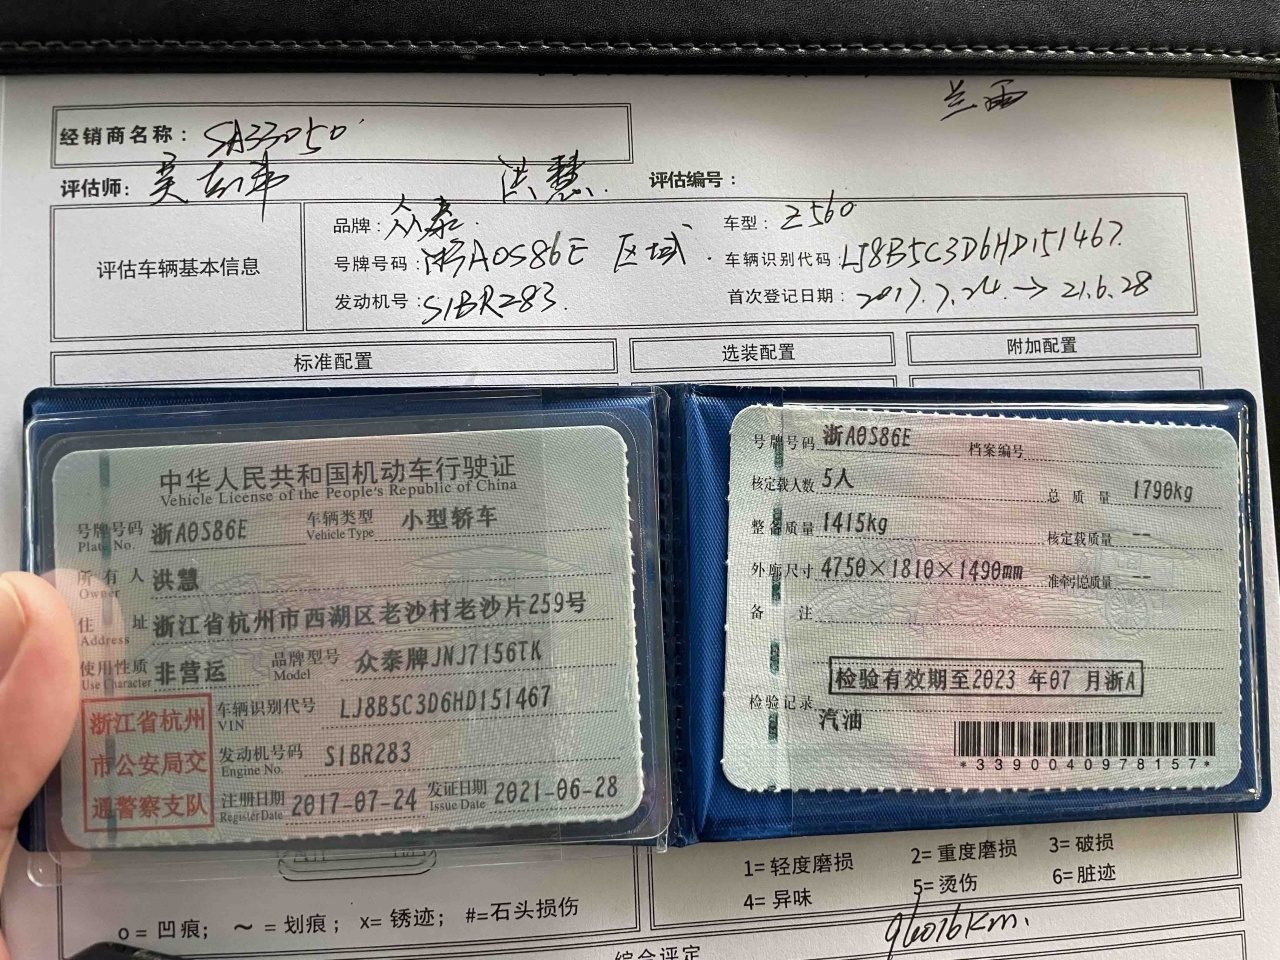 兰雨
经销商名称： SA33050
评估师： 洪慧 评估编号：
评估车辆基本信息
品牌：众泰 车型：Z560
号牌号码：浙A0S86E 区域 车辆识别代码：LJ8B5C3D6HD151467
发动机号：S1BR283. 首次登记日期：2017.7.24.→21.6.28
标准配置 选装配置 附加配置
中华人民共和国机动车行驶证
Vehicle License of the People's Republic of China
号牌号码 浙A0S86E 车辆类型 小型轿车
Plate No. Vehicle Type
所有人 洪慧
Owner
住址 浙江省杭州市西湖区老沙村老沙片259号
Address
使用性质 非营运 品牌型号 众泰牌JNJ7156TK
Use Character Model
浙江省杭州
市公安局交
通警察支队
车辆识别代号 LJ8B5C3D6HD151467
VIN
发动机号码 S1BR283
Engine No.
注册日期 2017-07-24 发证日期 2021-06-28
Register Date Issue Date
号牌号码 浙A0S86E 档案编号
核定载人数 5人 总质量 1790kg
整备质量 1415kg 核定载质量 --
外廓尺寸 4750×1810×1490mm 准牵引总质量 --
备注
检验有效期至2023 年07 月浙A
检验记录
汽油
*3390040978157*
1=轻度磨损 2=重度磨损 3=破损
4=异味 5=烫伤 6=脏迹
o = 凹痕； ~ = 划痕； x= 锈迹； #=石头损伤
96016km.
综合评定